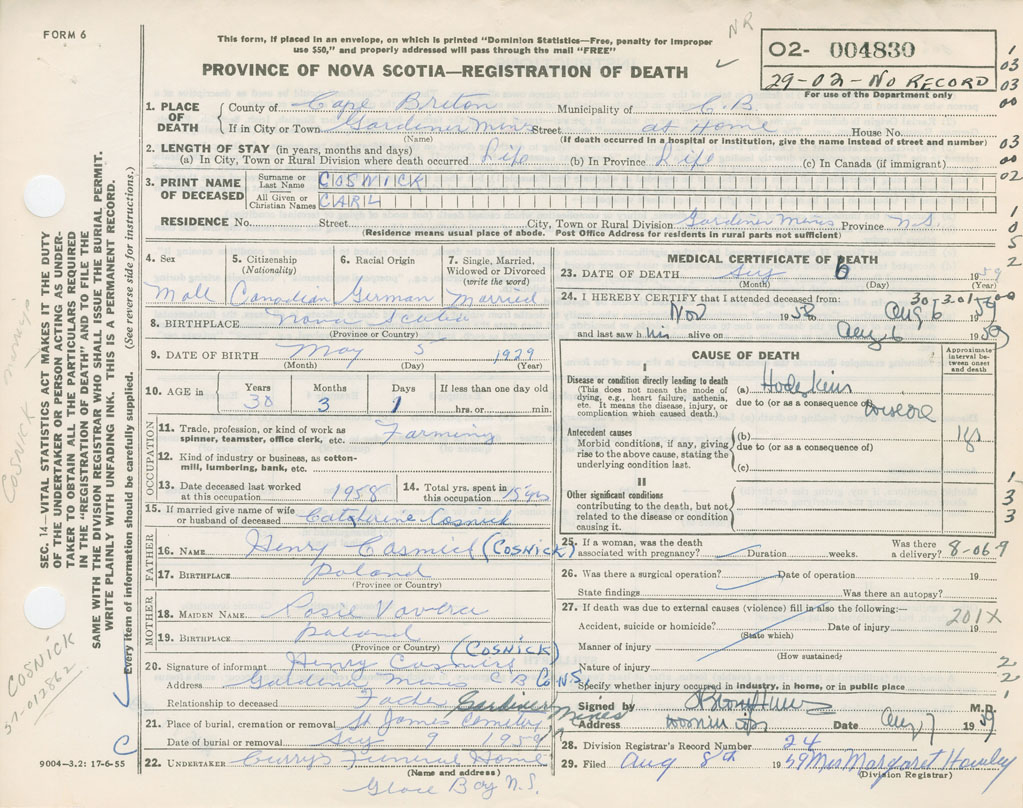 FORM 6
This form, if placed in an envelope, on which is printed "Dominion Statistics—Free, penalty for improper
use $50," and properly addressed will pass through the mail "FREE"
NR
PROVINCE OF NOVA SCOTIA—REGISTRATION OF DEATH
02- 004830
29-02-NO RECORD
For use of the Department only
1. PLACE OF DEATH County of Cape Breton Municipality of C.B.
If in City or Town Gardiner Mines Street at Home House No.
(Name) (If death occurred in a hospital or institution, give the name instead of street and number)
2. LENGTH OF STAY (in years, months and days)
(a) In City, Town or Rural Division where death occurred Life (b) In Province Life (c) In Canada (if immigrant)
3. PRINT NAME OF DECEASED
Surname or Last Name COSWICK
All Given or Christian Names CARL
RESIDENCE No. Street City, Town or Rural Division Gardiner Mines Province N.S.
(Residence means usual place of abode. Post Office Address for residents in rural parts not sufficient)
4. Sex 5. Citizenship (Nationality) 6. Racial Origin 7. Single, Married, Widowed or Divorced (write the word)
Mall Canadian German Married
8. BIRTHPLACE Nova Scotia
(Province or Country)
9. DATE OF BIRTH May 5 1929
(Month) (Day) (Year)
10. AGE in Years Months Days If less than one day old
30 3 1 hrs. or min.
OCCUPATION
11. Trade, profession, or kind of work as spinner, teamster, office clerk, etc. Farming
12. Kind of industry or business, as cotton-mill, lumbering, bank, etc.
13. Date deceased last worked at this occupation 1958 14. Total yrs. spent in this occupation 15 yrs
15. If married give name of wife or husband of deceased Catherine Cosnick
FATHER
16. NAME Henry (COSNICK)
17. BIRTHPLACE Poland
(Province or Country)
MOTHER
18. MAIDEN NAME Rosie Vavera
19. BIRTHPLACE Poland
(Province or Country) (COSNICK)
20. Signature of informant Henry
Address Gardiner Mines C B Co N.S.
Relationship to deceased Father
21. Place of burial, cremation or removal St James Cemetery Gardiner Mines
Date of burial or removal Aug 9 1959
22. UNDERTAKER Curry's Funeral Home
(Name and address)
Glace Bay N.S.
9004—3.2: 17-6-55
MEDICAL CERTIFICATE OF DEATH
23. DATE OF DEATH Aug 6 1959
(Month) (Day) (Year)
24. I HEREBY CERTIFY that I attended deceased from:
Nov 1958 Aug 6 1959
and last saw h is alive on Aug 6 1959
CAUSE OF DEATH
Approximate interval between onset and death
I
Disease or condition directly leading to death
(This does not mean the mode of dying, e.g., heart failure, asthenia, etc. It means the disease, injury, or complication which caused death.)
(a) Hodgkins
due to (or as a consequence of) disease
Antecedent causes
Morbid conditions, if any, giving rise to the above cause, stating the underlying condition last.
(b)
due to (or as a consequence of)
(c)
II
Other significant conditions
contributing to the death, but not related to the disease or condition causing it.
25. If a woman, was the death associated with pregnancy? Duration weeks. Was there a delivery? 8-06.9
26. Was there a surgical operation? Date of operation 19
State findings Was there an autopsy?
27. If death was due to external causes (violence) fill in also the following:—
Accident, suicide or homicide? Date of injury 19
201X
(State which)
Manner of injury
(How sustained)
Nature of injury
Specify whether injury occurred in industry, in home, or in public place
Signed by M.D.
Address Date Aug 7 1959
28. Division Registrar's Record Number 24
29. Filed Aug 8th 1959 Mrs Margaret
(Division Registrar)
SEC. 14—VITAL STATISTICS ACT MAKES IT THE DUTY
OF THE UNDERTAKER OR PERSON ACTING AS UNDER-
TAKER TO OBTAIN ALL THE PARTICULARS REQUIRED
IN THE "REGISTRATION OF DEATH" AND TO FILE THE
SAME WITH THE DIVISION REGISTRAR WHO SHALL ISSUE THE BURIAL PERMIT.
WRITE PLAINLY WITH UNFADING INK. THIS IS A PERMANENT RECORD.
Every item of information should be carefully supplied. (See reverse side for instructions.)
COSNICK marriage
COSNICK
51-012862
1
03
03
00
03
00
02
1
0
5
2
1
3
3
2
2
1